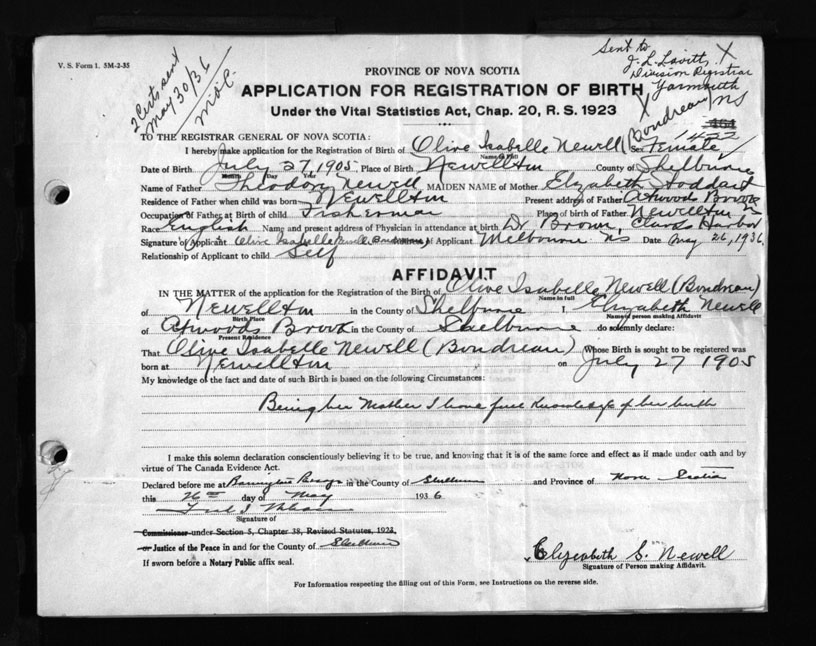 V. S. Form 1. 5M-2-35
2 Certs sent
May 30/36
Sent to
Division Registrar
Yarmouth
NS
PROVINCE OF NOVA SCOTIA
APPLICATION FOR REGISTRATION OF BIRTH
Under the Vital Statistics Act, Chap. 20, R. S. 1923
TO THE REGISTRAR GENERAL OF NOVA SCOTIA:
I hereby make application for the Registration of Birth of Olive Isabelle Newell (Boudreau) Sex Female
Name in Full
Date of Birth July 27, 1905 Place of Birth Newellton County of Shelburne
Month Day Year
Name of Father Theodore Newell MAIDEN NAME of Mother Elizabeth Stoddart
Residence of Father when child was born Newellton Present address of Father Atwoods Brook
Occupation of Father at Birth of child Fisherman Place of birth of Father Newellton NS
Race English Name and present address of Physician in attendance at birth Dr Brown, Clarks Harbor
Signature of Applicant Olive Isabelle Newell (Boudreau) of Applicant Melbourne NS Date May 26, 1936
Relationship of Applicant to child Self
AFFIDAVIT
IN THE MATTER of the application for the Registration of the Birth of Olive Isabelle Newell (Boudreau)
Name in full
of Newellton in the County of Shelburne I, Elizabeth Newell
Birth Place Name of person making Affidavit
of Atwoods Brook in the County of Shelburne do solemnly declare:
Present Residence
That Olive Isabelle Newell (Boudreau) Whose Birth is sought to be registered was
born at Newellton on July 27 1905
My knowledge of the fact and date of such Birth is based on the following Circumstances:
Being her Mother I have full knowledge of her birth
I make this solemn declaration conscientiously believing it to be true, and knowing that it is of the same force and effect as if made under oath and by
virtue of The Canada Evidence Act.
Declared before me at Barrington Passage in the County of Shelburne and Province of Nova Scotia
this 26th day of May 1936
Signature of
Commissioner under Section 5, Chapter 38, Revised Statutes, 1923,
or Justice of the Peace in and for the County of Shelburne
If sworn before a Notary Public affix seal.
Elizabeth S. Newell
Signature of Person making Affidavit.
For Information respecting the filling out of this Form, see Instructions on the reverse side.